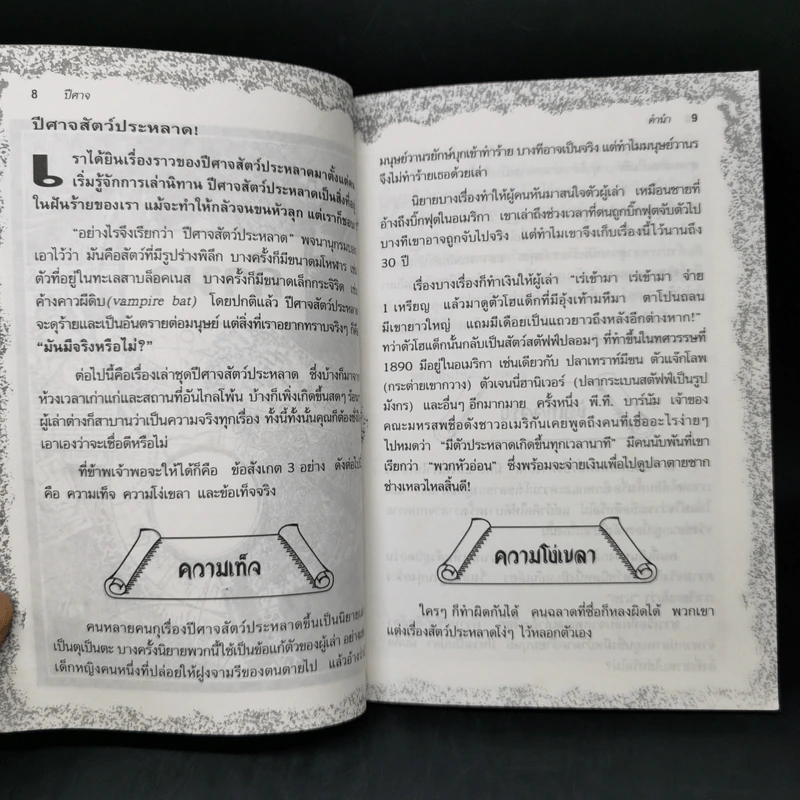 8 ปีศาจ
ปีศาจสัตว์ประหลาด!
เราได้ยินเรื่องราวของปีศาจสัตว์ประหลาดมาตั้งแต่
เริ่มรู้จักการเล่านิทาน ปีศาจสัตว์ประหลาดเป็นสิ่งที่อยู่
ในฝันร้ายของเรา แม้จะทำให้กลัวจนขนหัวลุก แต่เราก็ชอบ
"อย่างไรจึงเรียกว่า ปีศาจสัตว์ประหลาด" พจนานุกรม
เอาไว้ว่า มันคือสัตว์ที่มีรูปร่างพิลึก บางครั้งก็มีขนาดมโหฬาร เช่น
ตัวที่อยู่ในทะเลสาบล็อคเนส บางครั้งก็มีขนาดเล็กกระจิริด เช่น
ค้างคาวผีดิบ(vampire bat) โดยปกติแล้ว ปีศาจสัตว์ประหลาด
จะดุร้ายและเป็นอันตรายต่อมนุษย์ แต่สิ่งที่เราอยากทราบจริงๆ ก็คือ
"มันมีจริงหรือไม่?"
ต่อไปนี้คือเรื่องเล่าชุดปีศาจสัตว์ประหลาด ซึ่งบ้างก็มาจาก
ห้วงเวลาเก่าแก่และสถานที่อันไกลโพ้น บ้างก็เพิ่งเกิดขึ้นสดๆ ร้อนๆ
ผู้เล่าต่างก็สาบานว่าเป็นความจริงทุกเรื่อง ทั้งนี้ทั้งนั้นคุณก็ต้อง
เอาเองว่าจะเชื่อดีหรือไม่
ที่ข้าพเจ้าพอจะให้ได้ก็คือ ข้อสังเกต 3 อย่าง ดังต่อไปนี้
คือ ความเท็จ ความโง่เขลา และข้อเท็จจริง
ความเท็จ
คนหลายคนกุเรื่องปีศาจสัตว์ประหลาดขึ้นเป็นนิยาย
เป็นตุเป็นตะ บางครั้งนิยายพวกนี้ใช้เป็นข้อแก้ตัวของผู้เล่า อย่าง
เด็กหญิงคนหนึ่งที่ปล่อยให้ฝูงจามรีของตนตายไป แล้วอ้าง
คำนำ 9
มนุษย์วานรยักษ์บุกเข้าทำร้าย บางทีอาจเป็นจริง แต่ทำไมมนุษย์วานร
จึงไม่ทำร้ายเธอด้วยเล่า
นิยายบางเรื่องทำให้ผู้คนหันมาสนใจตัวผู้เล่า เหมือนชายที่
อ้างถึงบิ๊กฟุตในอเมริกา เขาเล่าถึงช่วงเวลาที่ตนถูกบิ๊กฟุตจับตัวไป
บางทีเขาอาจถูกจับไปจริง แต่ทำไมเขาจึงเก็บเรื่องนี้ไว้นานถึง
30 ปี
เรื่องบางเรื่องก็ทำเงินให้ผู้เล่า "เร่เข้ามา เร่เข้ามา จ่าย
1 เหรียญ แล้วมาดูตัวโฮแด็กที่มีอุ้งเท้ามหึมา ตาโปนถลน
มีเขายาวใหญ่ แถมมีเดือยเป็นแถวยาวถึงหลังอีกต่างหาก!"
ทว่าตัวโฮแด็กนั้นกลับเป็นสัตว์สตัฟฟ์ปลอมๆ ที่ทำขึ้นในทศวรรษที่
1890 มีอยู่ในอเมริกา เช่นเดียวกับ ปลาเทราท์มีขน ตัวแจ็กโลพ
(กระต่ายเขากวาง) ตัวเจนนี่ฮานิเวอร์ (ปลากระเบนสตัฟฟ์เป็นรูป
มังกร) และอื่นๆ อีกมากมาย ครั้งหนึ่ง พี.ที. บาร์นัม เจ้าของ
คณะมหรสพชื่อดังชาวอเมริกันเคยพูดถึงคนที่เชื่ออะไรง่ายๆ
ไปหมดว่า "มีตัวประหลาดเกิดขึ้นทุกเวลานาที" มีคนนับพันที่เขา
เรียกว่า "พวกหัวอ่อน" ซึ่งพร้อมจะจ่ายเงินเพื่อไปดูปลาตายซาก
ช่างเหลวไหลสิ้นดี!
ความโง่เขลา
ใครๆ ก็ทำผิดกันได้ คนฉลาดที่ซื่อก็หลงผิดได้ พวกเขา
แต่งเรื่องสัตว์ประหลาดโง่ๆ ไว้หลอกตัวเอง